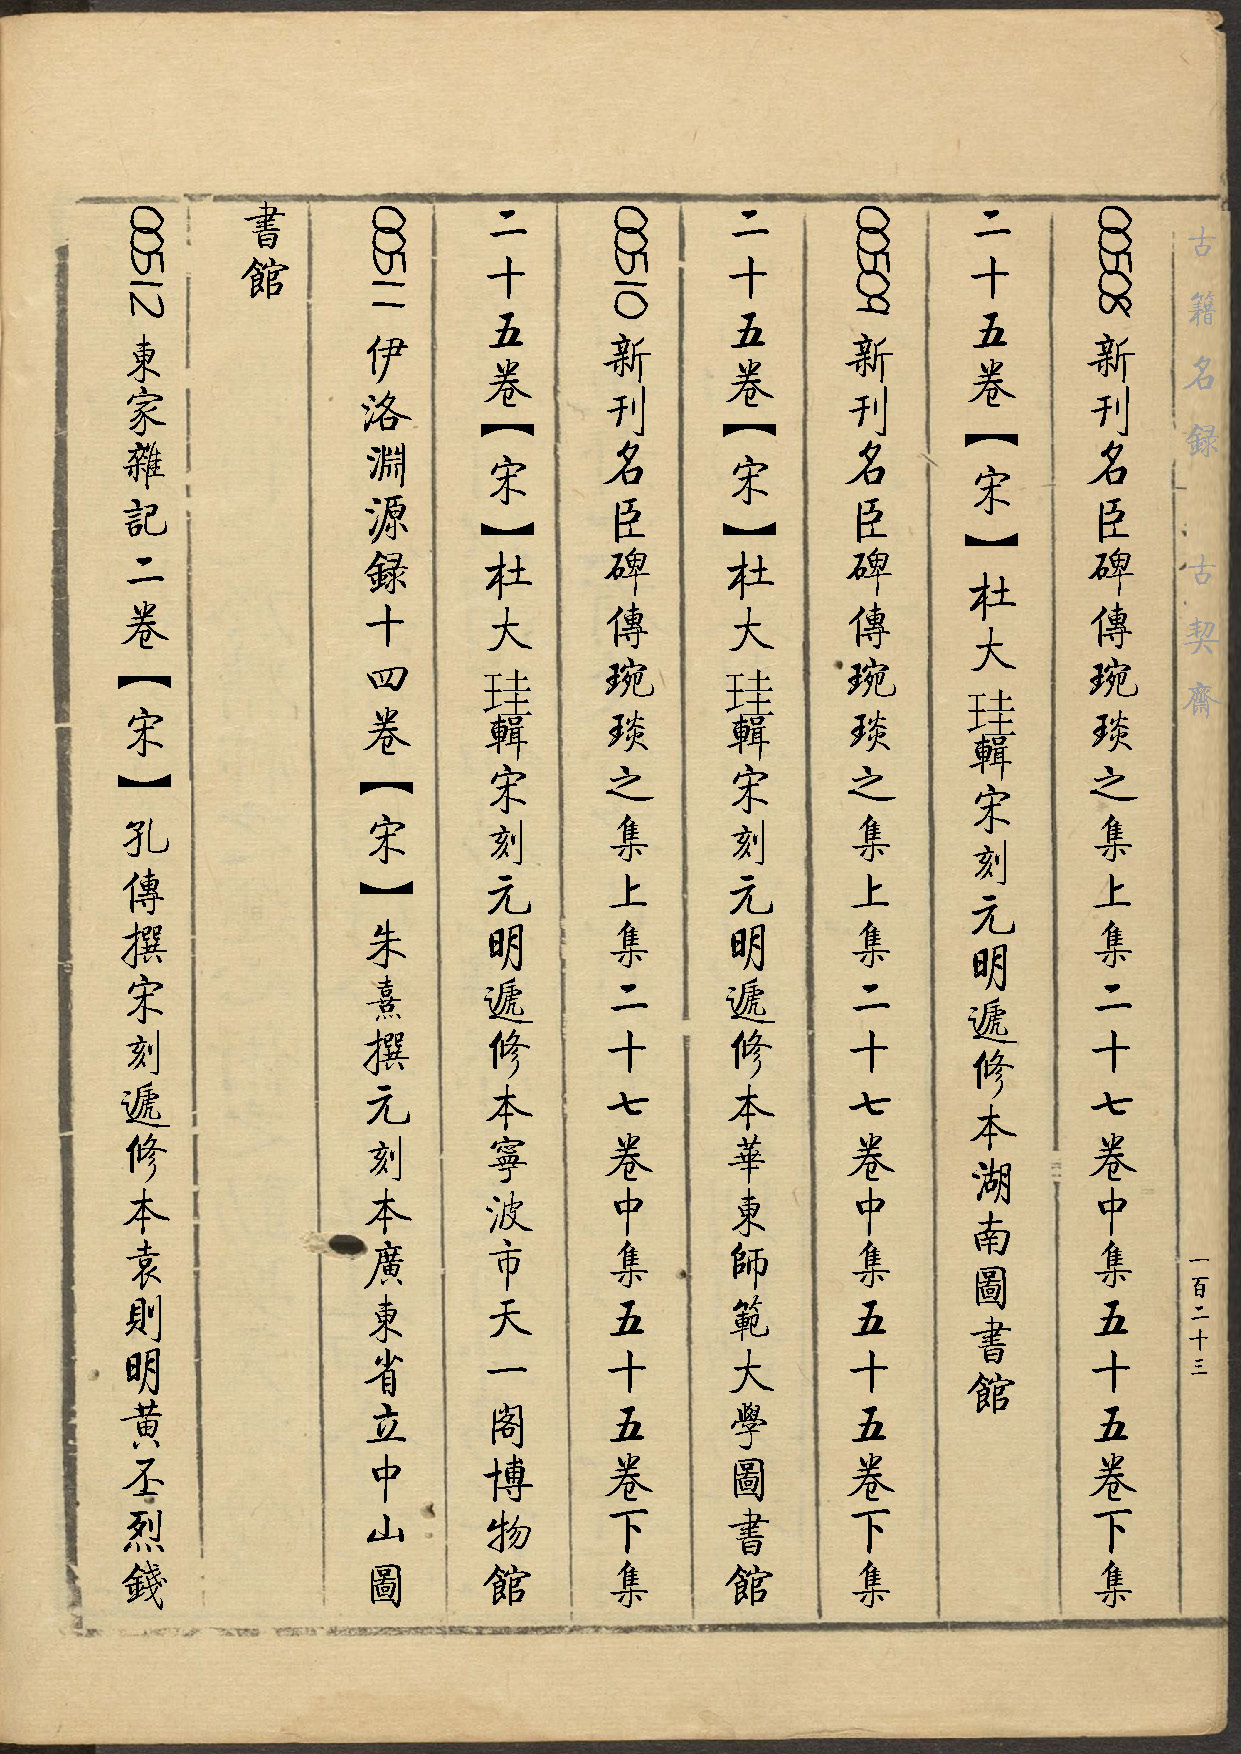 古籍名録 古契齋
一百二十三
00508 新刊名臣碑傳琬琰之集上集二十七卷中集五十五卷下集
二十五卷【宋】杜大珪輯宋刻元明遞修本湖南圖書館
00509 新刊名臣碑傳琬琰之集上集二十七卷中集五十五卷下集
二十五卷【宋】杜大珪輯宋刻元明遞修本華東師範大學圖書館
00510 新刊名臣碑傳琬琰之集上集二十七卷中集五十五卷下集
二十五卷【宋】杜大珪輯宋刻元明遞修本寧波市天一閣博物館
00511 伊洛淵源録十四卷【宋】朱熹撰元刻本廣東省立中山圖
書館
00512 東家雜記二卷【宋】孔傳撰宋刻遞修本袁則明黄丕烈錢